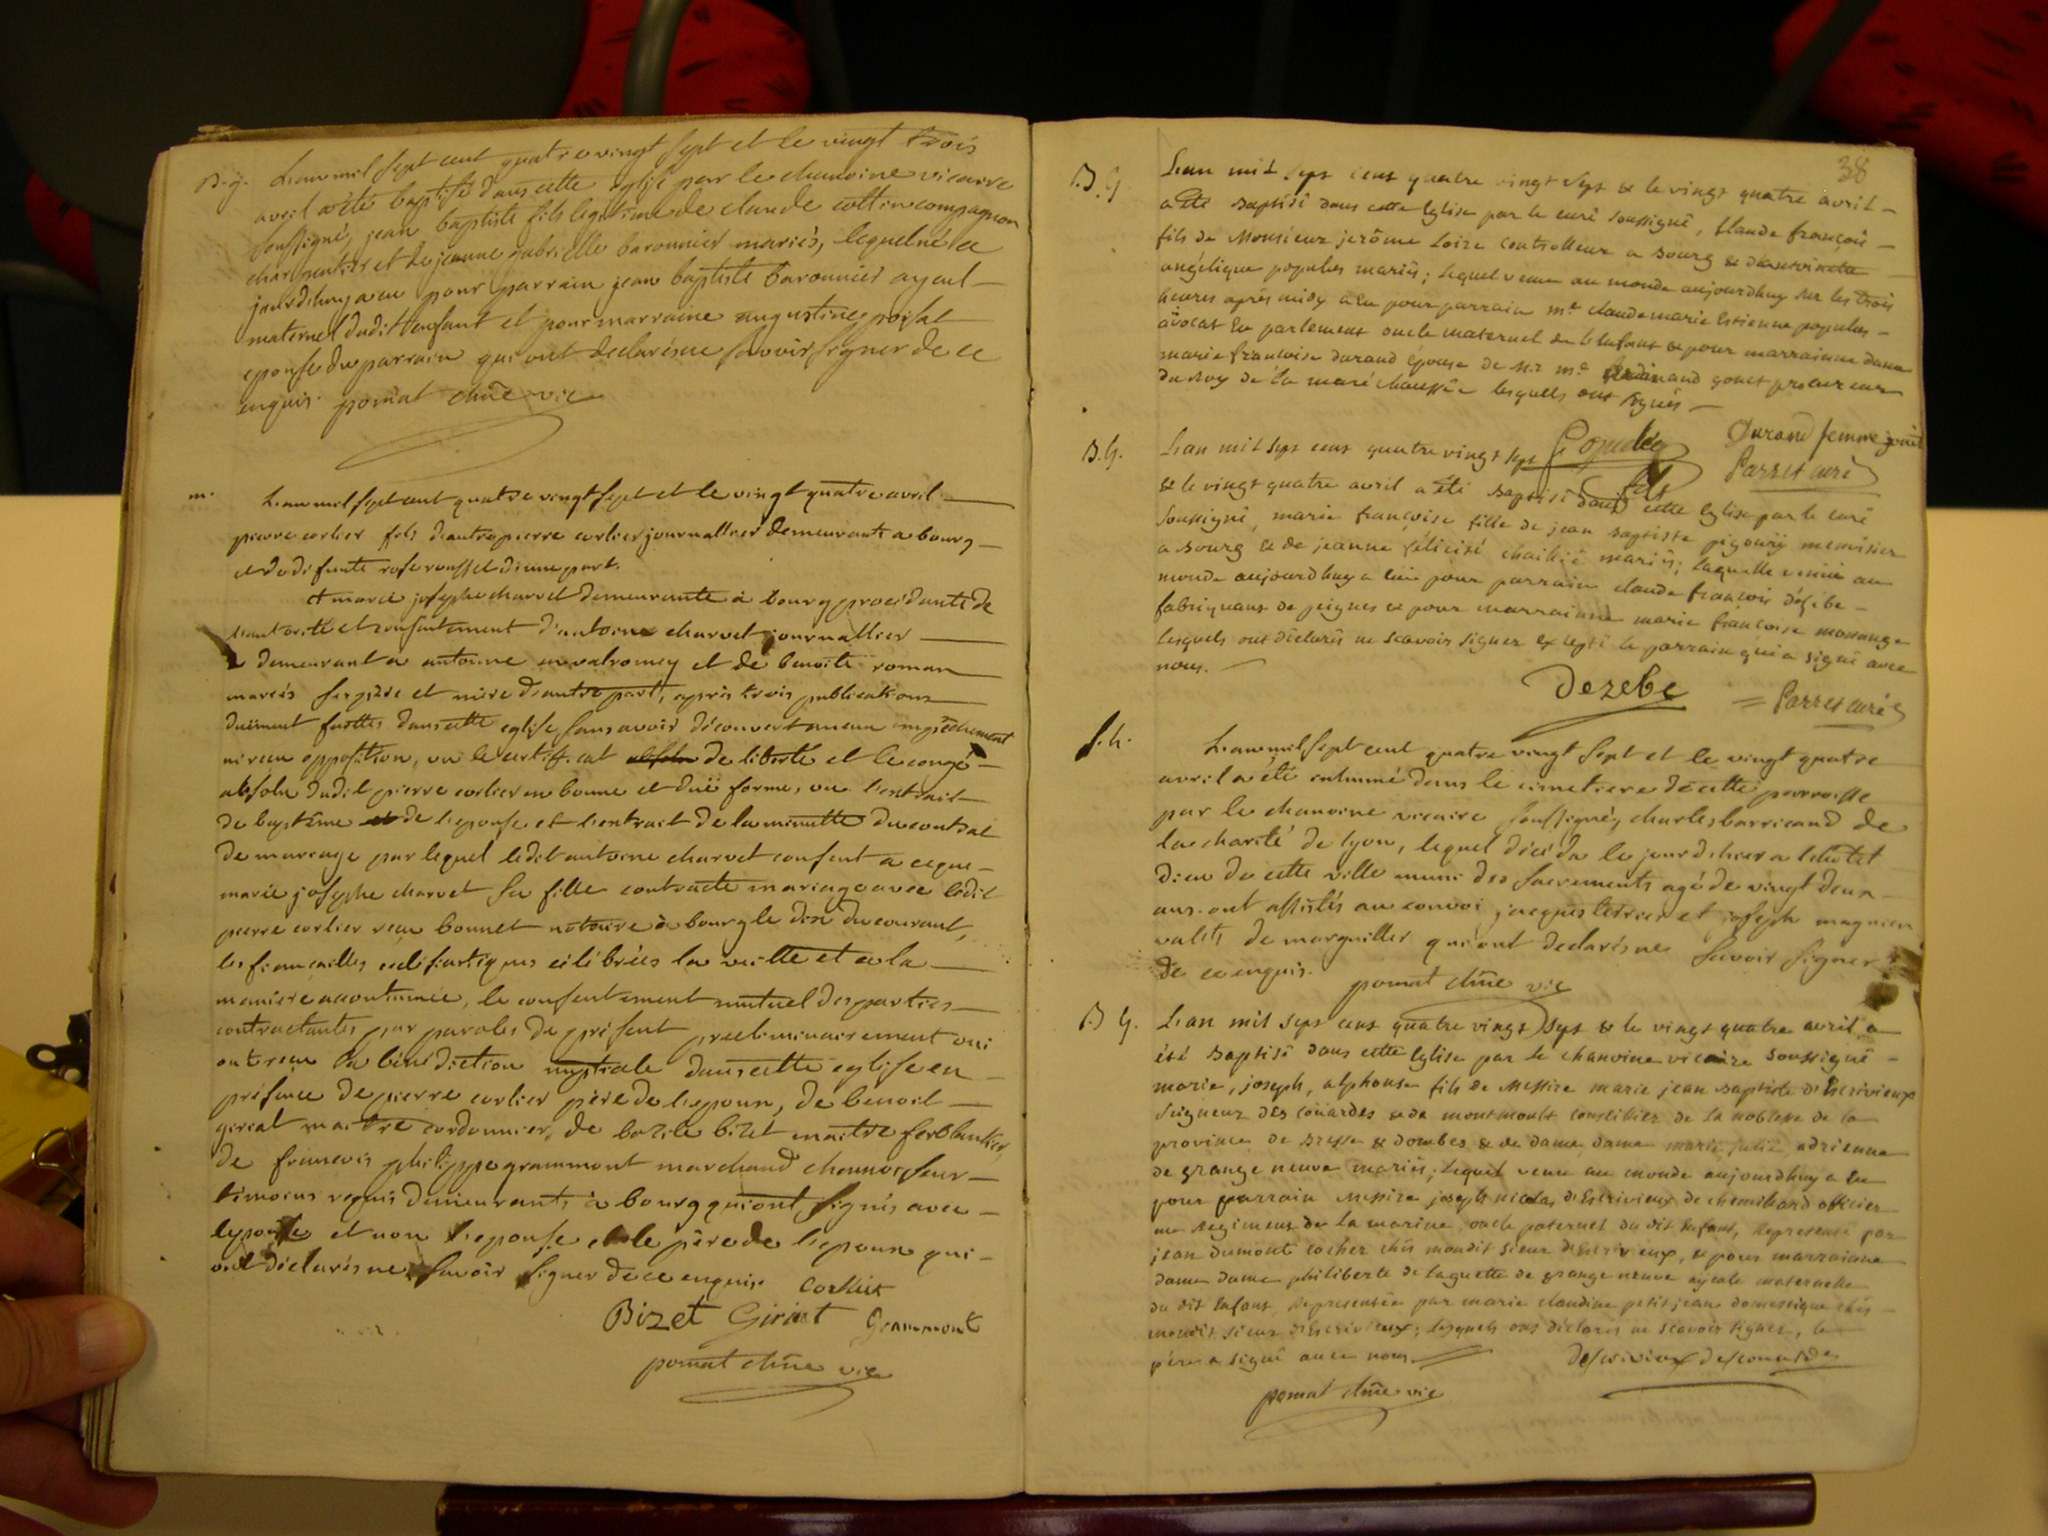 B. g. L'an mil sept cent quatre vingt sept et le vingt trois
avril a été baptisé dans cette eglise par le chanoine vicaire
soussigné, jean baptiste fils legitime de claude cottin compagnon
charpentier et de jeanne gabrielle baronnier mariés, lequel né ce
jourdhuy a eu pour parrain jean baptiste baronnier ayeul
maternel dudit enfant et pour marraine augustine poisat
epouse du parrain qui ont declarés ne savoir signer de ce
enquis. pomat chne vic
m. L'an mil sept cent quatre vingt sept et le vingt quatre avril
pierre corlier fils d'autre pierre corlier journallier demeurants a bourg
et de defunte rose rousset d'une part.
et marie josephe charvet demeurante à bourg procédante de
l'autorité et consentement d'antoine charvet journallier
demeurant a antoine en valromey et de benoite roman
mariés ses père et mère d'autre part, après trois publications
duëment faittes dans cette eglise sans avoir découvert aucun empêchement
ni reçu opposition, vu le certificat de liberté et le congé
absolu dudit pierre corlier en bonne et duë forme, vu l'extrait
de baptême de l'epouse et l'extrait de la minutte du contrat
de mariage par lequel ledit antoine charvet consent a ce que
marie josephe charvet sa fille contracte mariage avec ledit
pierre corlier reçu bonnet notaire à bourg le dix du courant,
les fiancailles ecclésiastiques célébrées la veille et a la
maniere accoutumée, le consentement mutuel des parties
contractantes par paroles de présent préliminairement oui
ont reçu la bénédiction nuptiale dans cette eglise en
présence de pierre corlier père de l'epoux, de benoit
giriat maitre cordonnier, de bazile bizet maitre ferblantier,
de francois philippe grammont marchand chamoiseur
témoins requis demeurants à bourg qui ont signés avec
l'epoux et non l'epouse et le père de l'epoux qui
ont déclarés ne savoir signer de ce enquis corlier
Bizet Giriat Grammont
pomat chne vic
38
B. G. L'an mil sept cent quatre vingt sept & le vingt quatre avril
a été baptisé dans cette Eglise par le curé soussigné, Claude françois
fils de Monsieur jerôme Loire controlleur a Bourg &
angélique populus mariés; lequel venu au monde aujourdhuy sur les trois
heures après midy a eu pour parrain me claude marie Estienne populus
avocat en parlement oncle maternel de l'Enfant & pour marrainne dame
marie françoise durand épouse de mr me ferdinand gonet procureur
du Roy de la maréchaussée lesquels ont signés
Populus Durand femme gonet
Parret curé
B. G. L'an mil sept cent quatre vingt sept
& le vingt quatre avril a été baptisé dans cette Eglise par le curé
soussigné, marie françoise fille de jean Baptiste pigoury menuisier
a Bourg & de jeanne félicité mariés; laquelle venue au
monde aujourdhuy a eu pour parrain claude françois dézebe
fabriquant de peignes & pour marrainne marie françoise
lesquels ont déclarés ne scavoir signer excepté le parrain qui a signé avec
nous.
Dezebe Parret curé
S. h. L'an mil sept cent quatre vingt sept et le vingt quatre
avril a été inhumé dans le cimetiere de cette parroisse
par le chanoine vicaire soussigné, charles barricand de
la charité de lyon, lequel décéda le jour d'hier a l'hotel
dieu de cette ville muni des sacrements agé de vingt deux
ans. ont assistés au convoi jacques terrier et joseph magnien
valets de marguillier qui ont declarés ne savoir signer
de ce enquis. pomat chne vic
B G. L'an mil sept cent quatre vingt sept & le vingt quatre avril a
été Baptisé dans cette Eglise par le chanoine vicaire soussigné
marie, joseph, alphonse fils de Messire marie jean Baptiste d'Escrivieux
seigneur des couardes & de montmoult conseiller de la noblesse de la
province de Bresse & dombes & de dame, dame marie julie adrienne
de grange neuve mariés; lequel venu au monde aujourdhuy a eu
pour parrain Messire joseph nicolas d'Escrivieux de chemillard officier
au Regiment de la marine, oncle paternel du dit Enfant, Representé par
jean dumont cocher chés mondit sieur d'Escrivieux, & pour marrainne
dame dame philiberte de laguette de grange neuve ayeule maternelle
du dit Enfant, Representée par marie claudine petit jean domestique chés
mondit sieur d'Escrivieux; lesquels ont déclarés ne scavoir signer, le
père a signé avec nous. descrivieux descouardes
pomat chne vic